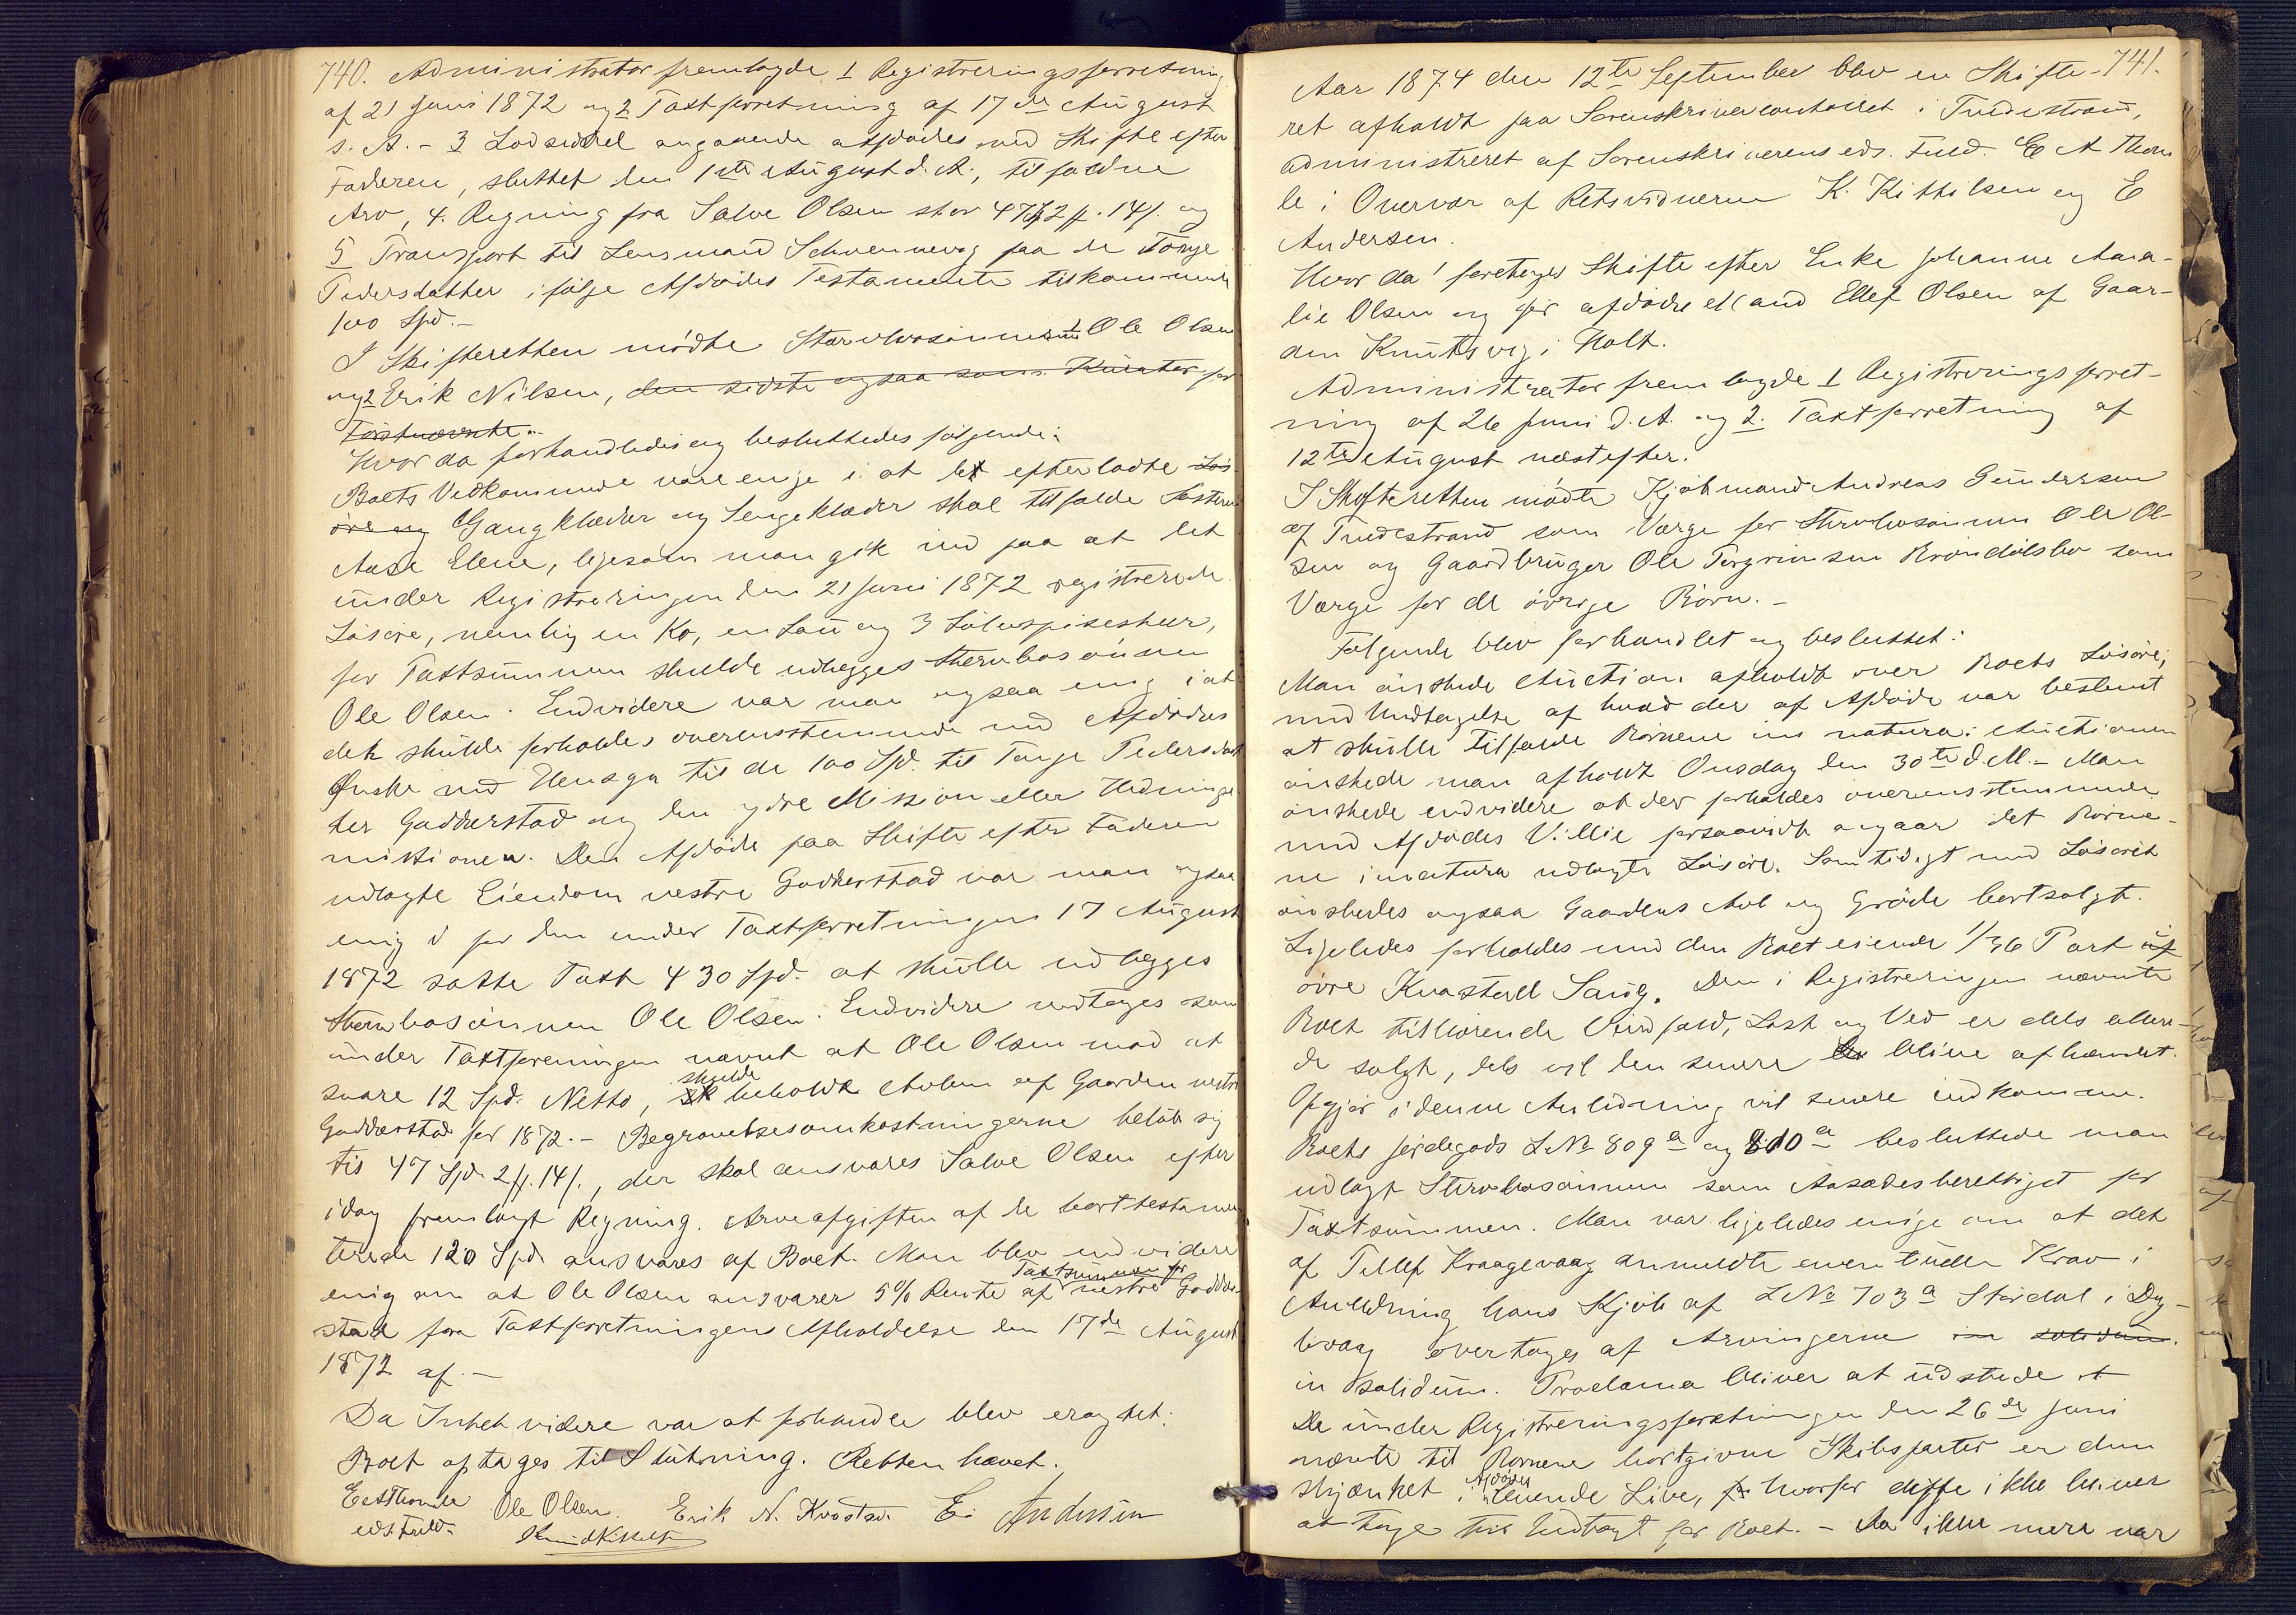 740. Administrator fremlagde 1 Registreringsforretning
af 21 Juni 1872 og 2 Taxtforretning af 17de August
s. A. - 3 Lodseddel angaaende afdødes ved Skifte efter
Faderen, sluttet den 1ste August d. A., tilfaldne
Arv, 4. Regning fra Salve Olsen stor 47 2 14 og
5 Transport til Lensmand paa de Tonje
Pedersdatter ifølge Afdødes Testamente tilkommende
100 Spd.-
I Skifteretten mødte Stervbosønnerne 1 Ole Olsen
og 2 Erik Nilsen, den sidste ogsaa som Kurator for
Førstnævnte.
Hvor da forhandledes og besluttedes følgende:
Boets Vedkommende vare enige i at let efterladte Løs-
øre og Gangklæder og Sengeklæder skal tilfalde Søsteren
Aase Elene, ligesom man gik ind paa at det
under Registreringen den 21 Juni 1872 registrerede
Løsøre, nemlig en Ko, en Sau og 3 Sølvspiseskeer,
for Taxtsummen skulde udlægges Stervbosønnen
Ole Olsen. Endvidere var man ogsaa enig i at
det skulde forholdes overensstemmende med Afdødes
Ønske med Hensyn til de 100 Spd. til Tonje Pedersdat
ter Godderstad og den ydre Mission eller Hedninge
missionen. Den Afdøde paa Skifte efter Faderen
udlagte Eiendom vestre Godderstad var man ogsaa
enig i for den under Taxtforretningen 17 August
1872 satte Taxt 430 Spd. at skulle udlægges
Stervbosønnen Ole Olsen. Endvidere vedtoges som
under Taxtforeningen nævnt at Ole Olsen mod at
svare 12 Spd. Netto, sk skulde beholde Avlen af Gaarden vestre
Godderstad for 1872.- Begravelsesomkostningerne beløb sig
til 47 Spd. 2 14, der skal ansvares Salve Olsen efter
idag fremlagt Regning. Arveafgiften af de borttestamen
terede 120 Spd. ansvares af Boet. Man blev endvidere
enig om at Ole Olsen ansvarer 5% Rente af Taxtsummen for vestre Godder
stad fra Taxtforretningens Afholdelse den 17de August
1872 af.-
Da Intet videre var at forhandle blev eragtet:
Boet optages til Slutning. Retten hævet.
EAThomle Ole Olsen. Erik N. Kvastad. E. Andersen
eds. Fuld.
741.
Aar 1874 den 12te September blev en Skifte-
ret afholdt paa Sorenskrivercontoiret i Tvedestrand,
administreret af Sorenskriverens eds. Fuld. E A Thom
le i Overvær af Retsvidnerne K. Kittilsen og E
Andersen.
Hvor da! foretoges Skifte efter Enke Johanne Ama-
lie Olsen og før afdøde Mand Ellef Olsen af Gaar-
den Knutsvig i Holt.
Administrator fremlagde 1 Registreringsforret-
ning af 26 Juni d. A. og 2. Taxtforretning af
12te August næstefter.
I Skifteretten mødte Kjøbmand Andreas Gundersen
af Tvedestrand som Værge for Stervbosønnen Ole Ol-
sen og Gaardbruger Ole Torgrimsen Brøndalsbo som
Værge for de øvrige Børn.-
Følgende blev forhandlet og besluttet:
Man ønskede Auction afholdt over Boets Løsøre,
med Undtagelse af hvad der af Afdøde var bestemt
at skulle tilfalde Børnene in natura: Auctionen
ønskede man afholdt Onsdag den 30te d. M.- Man
ønskede endvidere at der forholdes overensstemmende
med Afdødes Villie forsaavidt angaar det Børne-
ne in natura udlagte Løsøre. Samtidigt med Løsøret
ønskedes ogsaa Gaardens Avl og Grøde bortsolgt.
Ligeledes forholdes med den Boet eiende 1/36 Part af
øvre Kvastad Saug. Den i Registreringen nævnte
Boet tilhørende Vindfald, Last og Ved er dels allere-
de solgt, dels vil den senere blive afhændet.
Opgjør i denne Anledning vil senere indkomme.
Boets Jordegods LNo 809a og 810a besluttede man
udlagt Stervbosønnen som Aasædesberettiget for
Taxtsummen. Man var ligeledes enige om at det
af Tellef Kraagevaag anmeldte eventuelle Krav i
Anledning hans Kjøb af LNo 703a Stordal i Dy-
bvaag overtages af Arvingerne in solidum.
in solidum. Proclama bliver at udstede
De under Registreringsforretningen den 26de Juni
nævnte til Børnene bortgivne Skibsparter er dem
skjænket i Afdødes levende Live, hvorfor disse ikke bliver
at tage til Indtægt for Boet.- Da ikke mere var